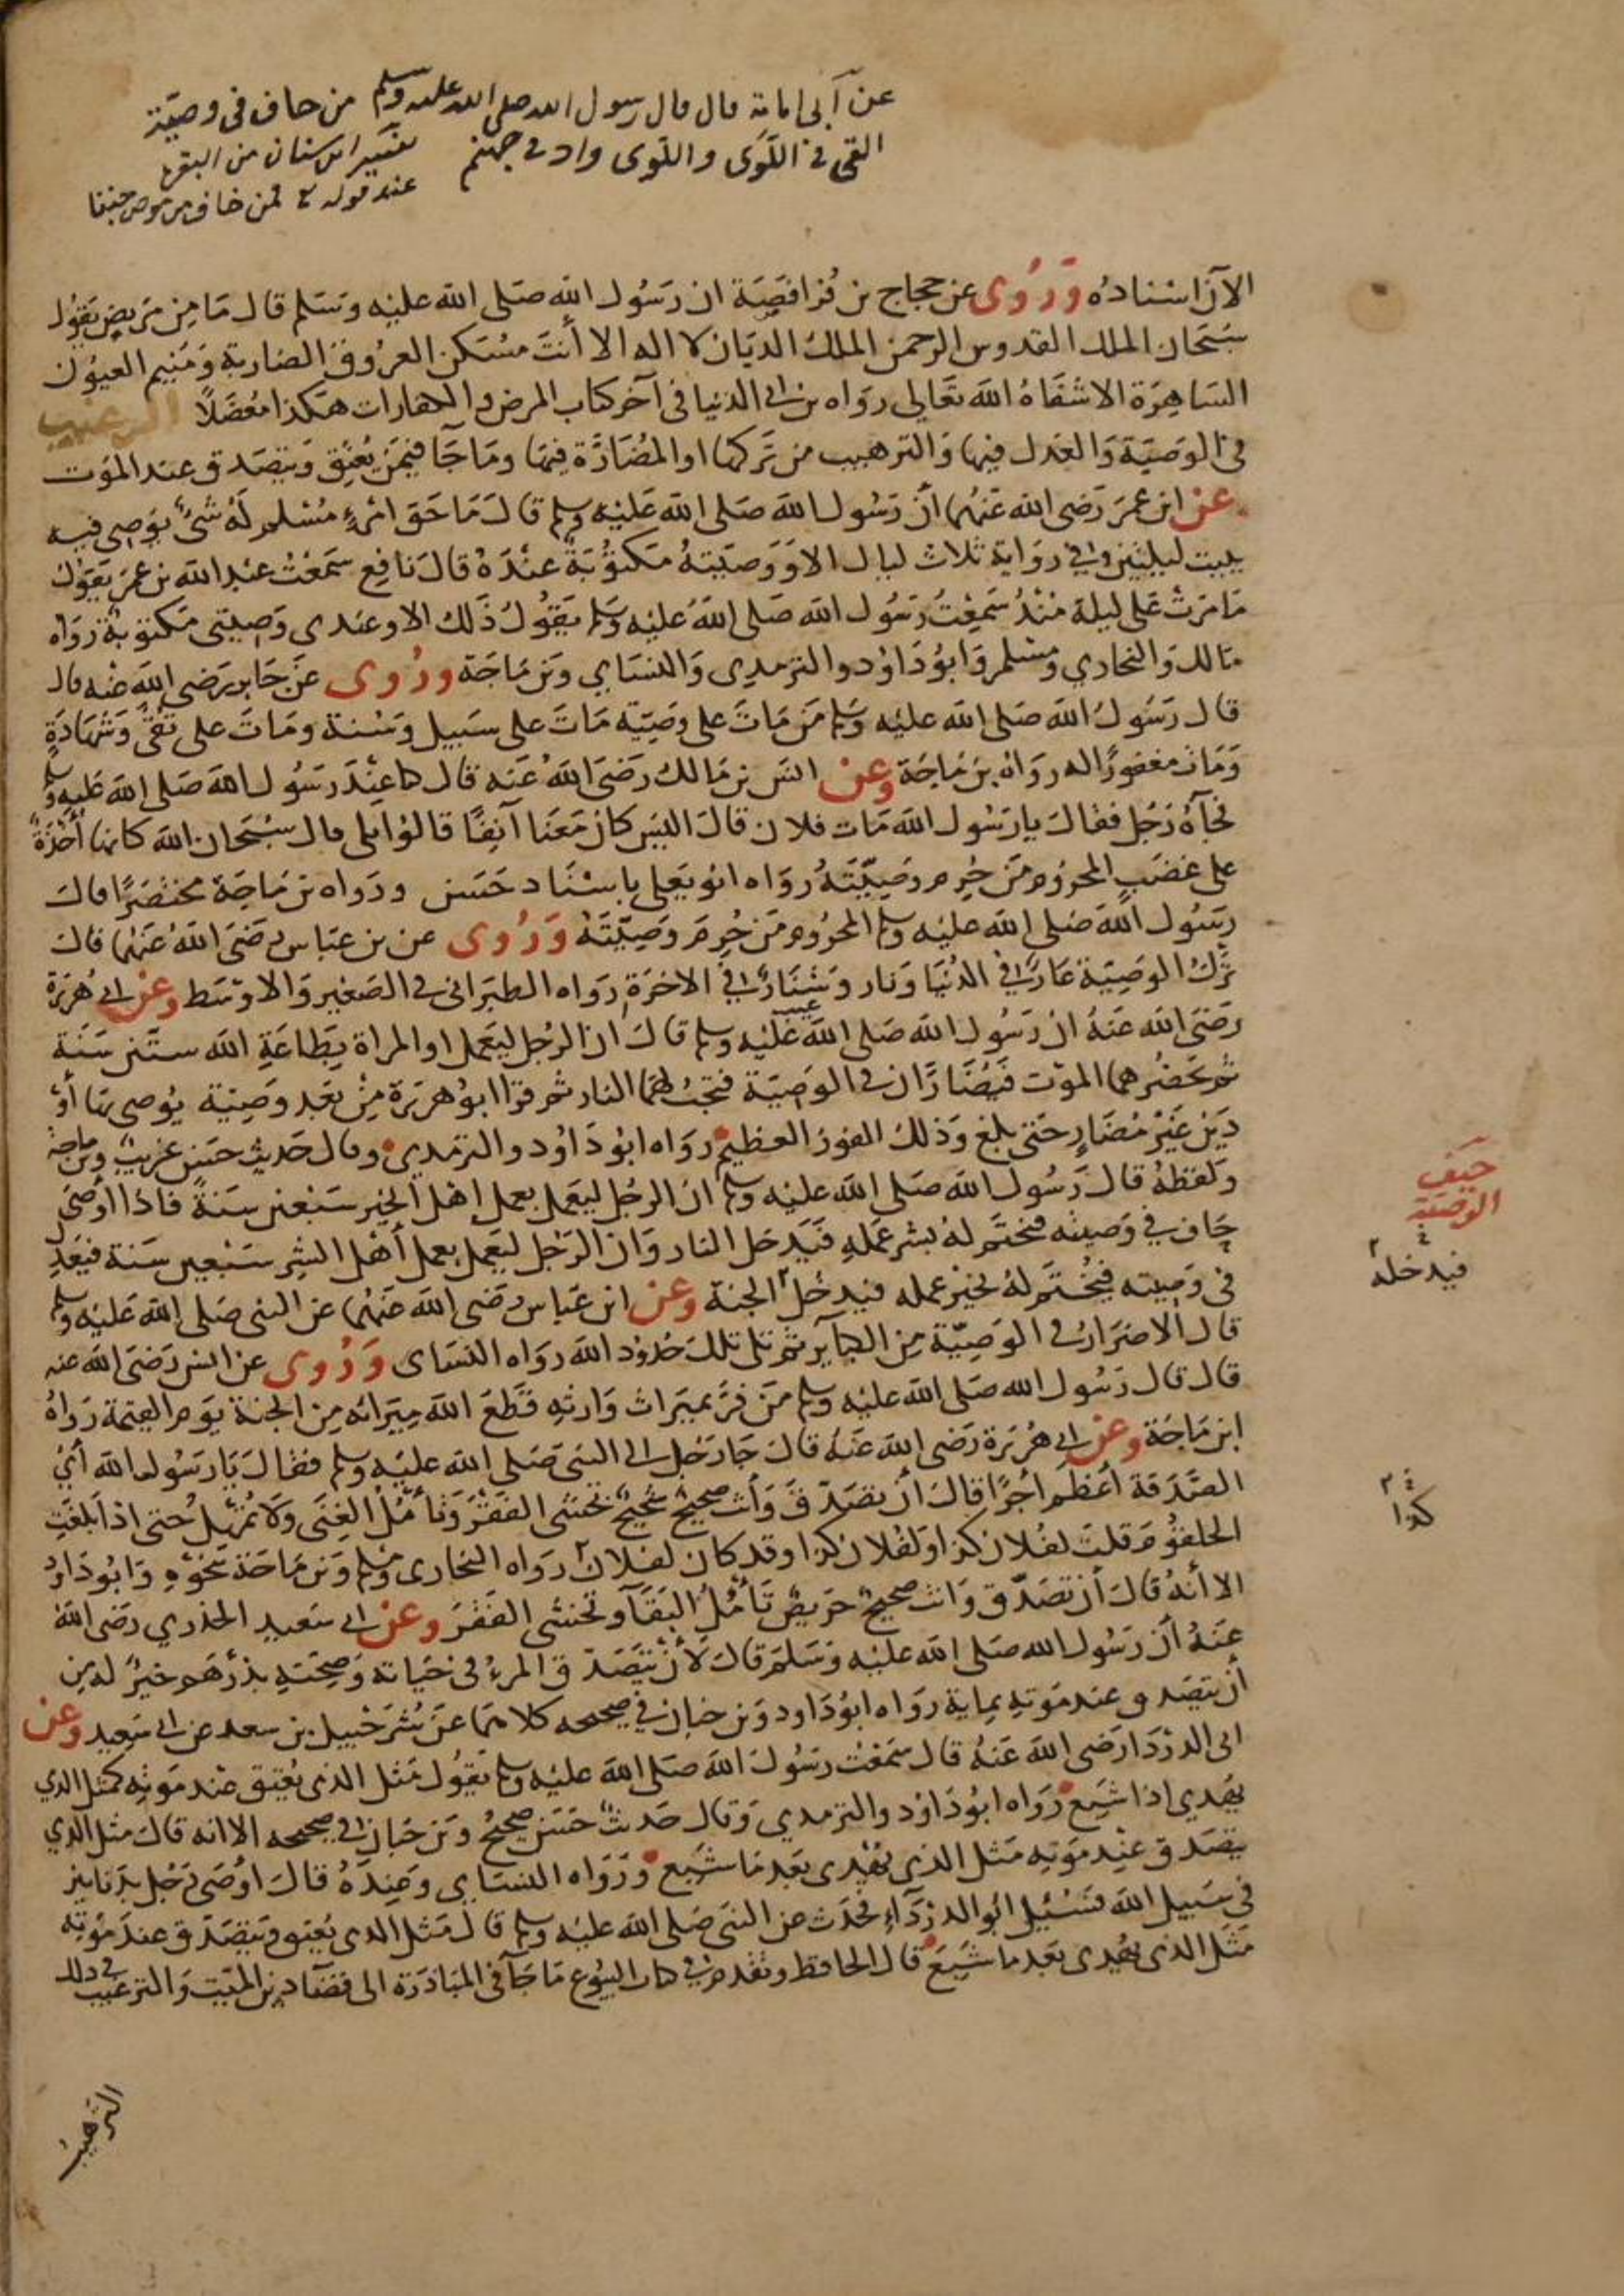 عن أبى امامة قال قال رسول الله صلى الله عليه وسلم من حاف فى وصيته
القى فى اللوى واللوى واد فى جهنم
تفسير ابن سنان من البقرة
عند قوله فمن خاف من موص جنفا
الآن اسناده وروى عن حجاج بن فرافصة ان رسول الله صلى الله عليه وسلم قال ما من مريض يقول
سبحان الملك القدوس الرحمن الملك الديان لا اله الا أنت مسكن العروق الضاربة ومنيم العيون
الساهرة الا شفاه الله تعالى رواه بن ابى الدنيا فى آخر كتاب المرض والكفارات هكذا معضلا الترغيب
فى الوصية والعدل فيها والترهيب من تركها او المضارة فيها وما جآ فيمن يعتق ويتصدق عند الموت
عن ابن عمر رضى الله عنهما أن رسول الله صلى الله عليه وسلم قال ما حق امرئ مسلم له شئ يوصى فيه
يبيت ليلتين وفي رواية ثلاث ليال الا ووصيته مكتوبة عنده قال نافع سمعت عبد الله بن عمر يقول
ما مرت على ليلة منذ سمعت رسول الله صلى الله عليه وسلم يقول ذلك الا وعندى وصيتى مكتوبة رواه
مالك والبخاري ومسلم وابو داود والترمدى والنساي وبن ماجة وروى عن جابر رضى الله عنه قال
قال رسول الله صلى الله عليه وسلم من مات على وصية مات على سبيل وسنة ومات على تقى وشهادة
ومات مغفورا له رواه بن ماجة وعن انس بن مالك رضى الله عنه قال كنا عند رسول الله صلى الله عليه وسلم
فجآه رجل فقال يا رسول الله مات فلان قال اليس كان معنا آنفا قالوا بلى قال سبحان الله كانها أخذة
على غضب المحروم من حرم وصيته رواه ابو يعلى باسناد حسن ورواه بن ماجة مختصرا قال
رسول الله صلى الله عليه وسلم المحروم من حرم وصيته وروى عن بن عباس رضى الله عنهما قال
ترك الوصية عار في الدنيا ونار وشنار في الاخرة رواه الطبرانى فى الصغير والاوسط وعن ابى هريرة
رضى الله عنه ان رسول الله صلى الله عليه وسلم قال ان الرجل ليعمل او المراة بطاعة الله ستين سنة
ثم يحضرهما الموت فيضاران فى الوصية فتجب لهما النار ثم قرا ابو هريرة من بعد وصية يوصى بها أو
دين غير مضار حتى بلغ وذلك الفوز العظيم رواه ابو داود والترمدي وقال حديث حسن غريب وبن ماجة
ولفظه قال رسول الله صلى الله عليه وسلم ان الرجل ليعمل بعمل اهل الخير سبعين سنة فاذا أوصى
حاف في وصيته فيختم له بشر عمله فيدخل النار وان الرجل ليعمل بعمل أهل الشر سبعين سنة فيعدل
فى وصيته فيختم له بخير عمله فيدخل الجنة وعن ابن عباس رضى الله عنهما عن النبى صلى الله عليه وسلم
قال الاضرار فى الوصية من الكبآير ثم تلى تلك حدود الله رواه النساى وروى عن انس رضى الله عنه
قال قال رسول الله صلى الله عليه وسلم من فر بميراث وارثه قطع الله ميراثه من الجنة يوم القيمة رواه
ابن ماجة وعن ابى هريرة رضى الله عنه قال جا رجل الى النبى صلى الله عليه وسلم فقال يا رسول الله أى
الصدقة أعظم اجرا قال أن تصدق وأنت صحيح شحيح تخشى الفقر وتأمل الغنى ولا تمهل حتى اذا بلغت
الحلقوم قلت لفلان كذا ولفلان كذا وقد كان لفلان رواه البخارى ومسلم وبن ماجة نحوه وابو داود
الا أنه قال أن تصدق وانت صحيح حريص تأمل البقآ وتخشى الفقر وعن ابى سعيد الخدري رضى الله
عنه أن رسول الله صلى الله عليه وسلم قال لأن يتصدق المرء فى حياته وصحته بدرهم خير له من
أن يتصدق عند موته بماية رواه ابو داود وبن حبان في صحيحه كلاهما عن شرحبيل بن سعد عن ابى سعيد وعن
ابى الدردا رضى الله عنه قال سمعت رسول الله صلى الله عليه وسلم يقول مثل الذى يعتق عند موته كمثل الذي
يهدي اذا شبع رواه ابو داود والترمدي وقال حديث حسن صحيح وبن حبان في صحيحه الا انه قال مثل الذي
يتصدق عند موته مثل الذى يهدى بعد ما شبع ورواه النساى وعنده قال اوصى رجل بدنانير
فى سبيل الله فسئيل ابو الدردآء فحدث عن النبى صلى الله عليه وسلم قال مثل الذى يعتق ويتصدق عند موته
مثل الذى يهدى بعد ما شبع قال الحافظ وتقدم في كتاب البيوع ما جآ فى المبادرة الى قضآ دين الميت والترغيب فى ذلك
حيف
الوصية
فيدخله
كذا
الترهيب